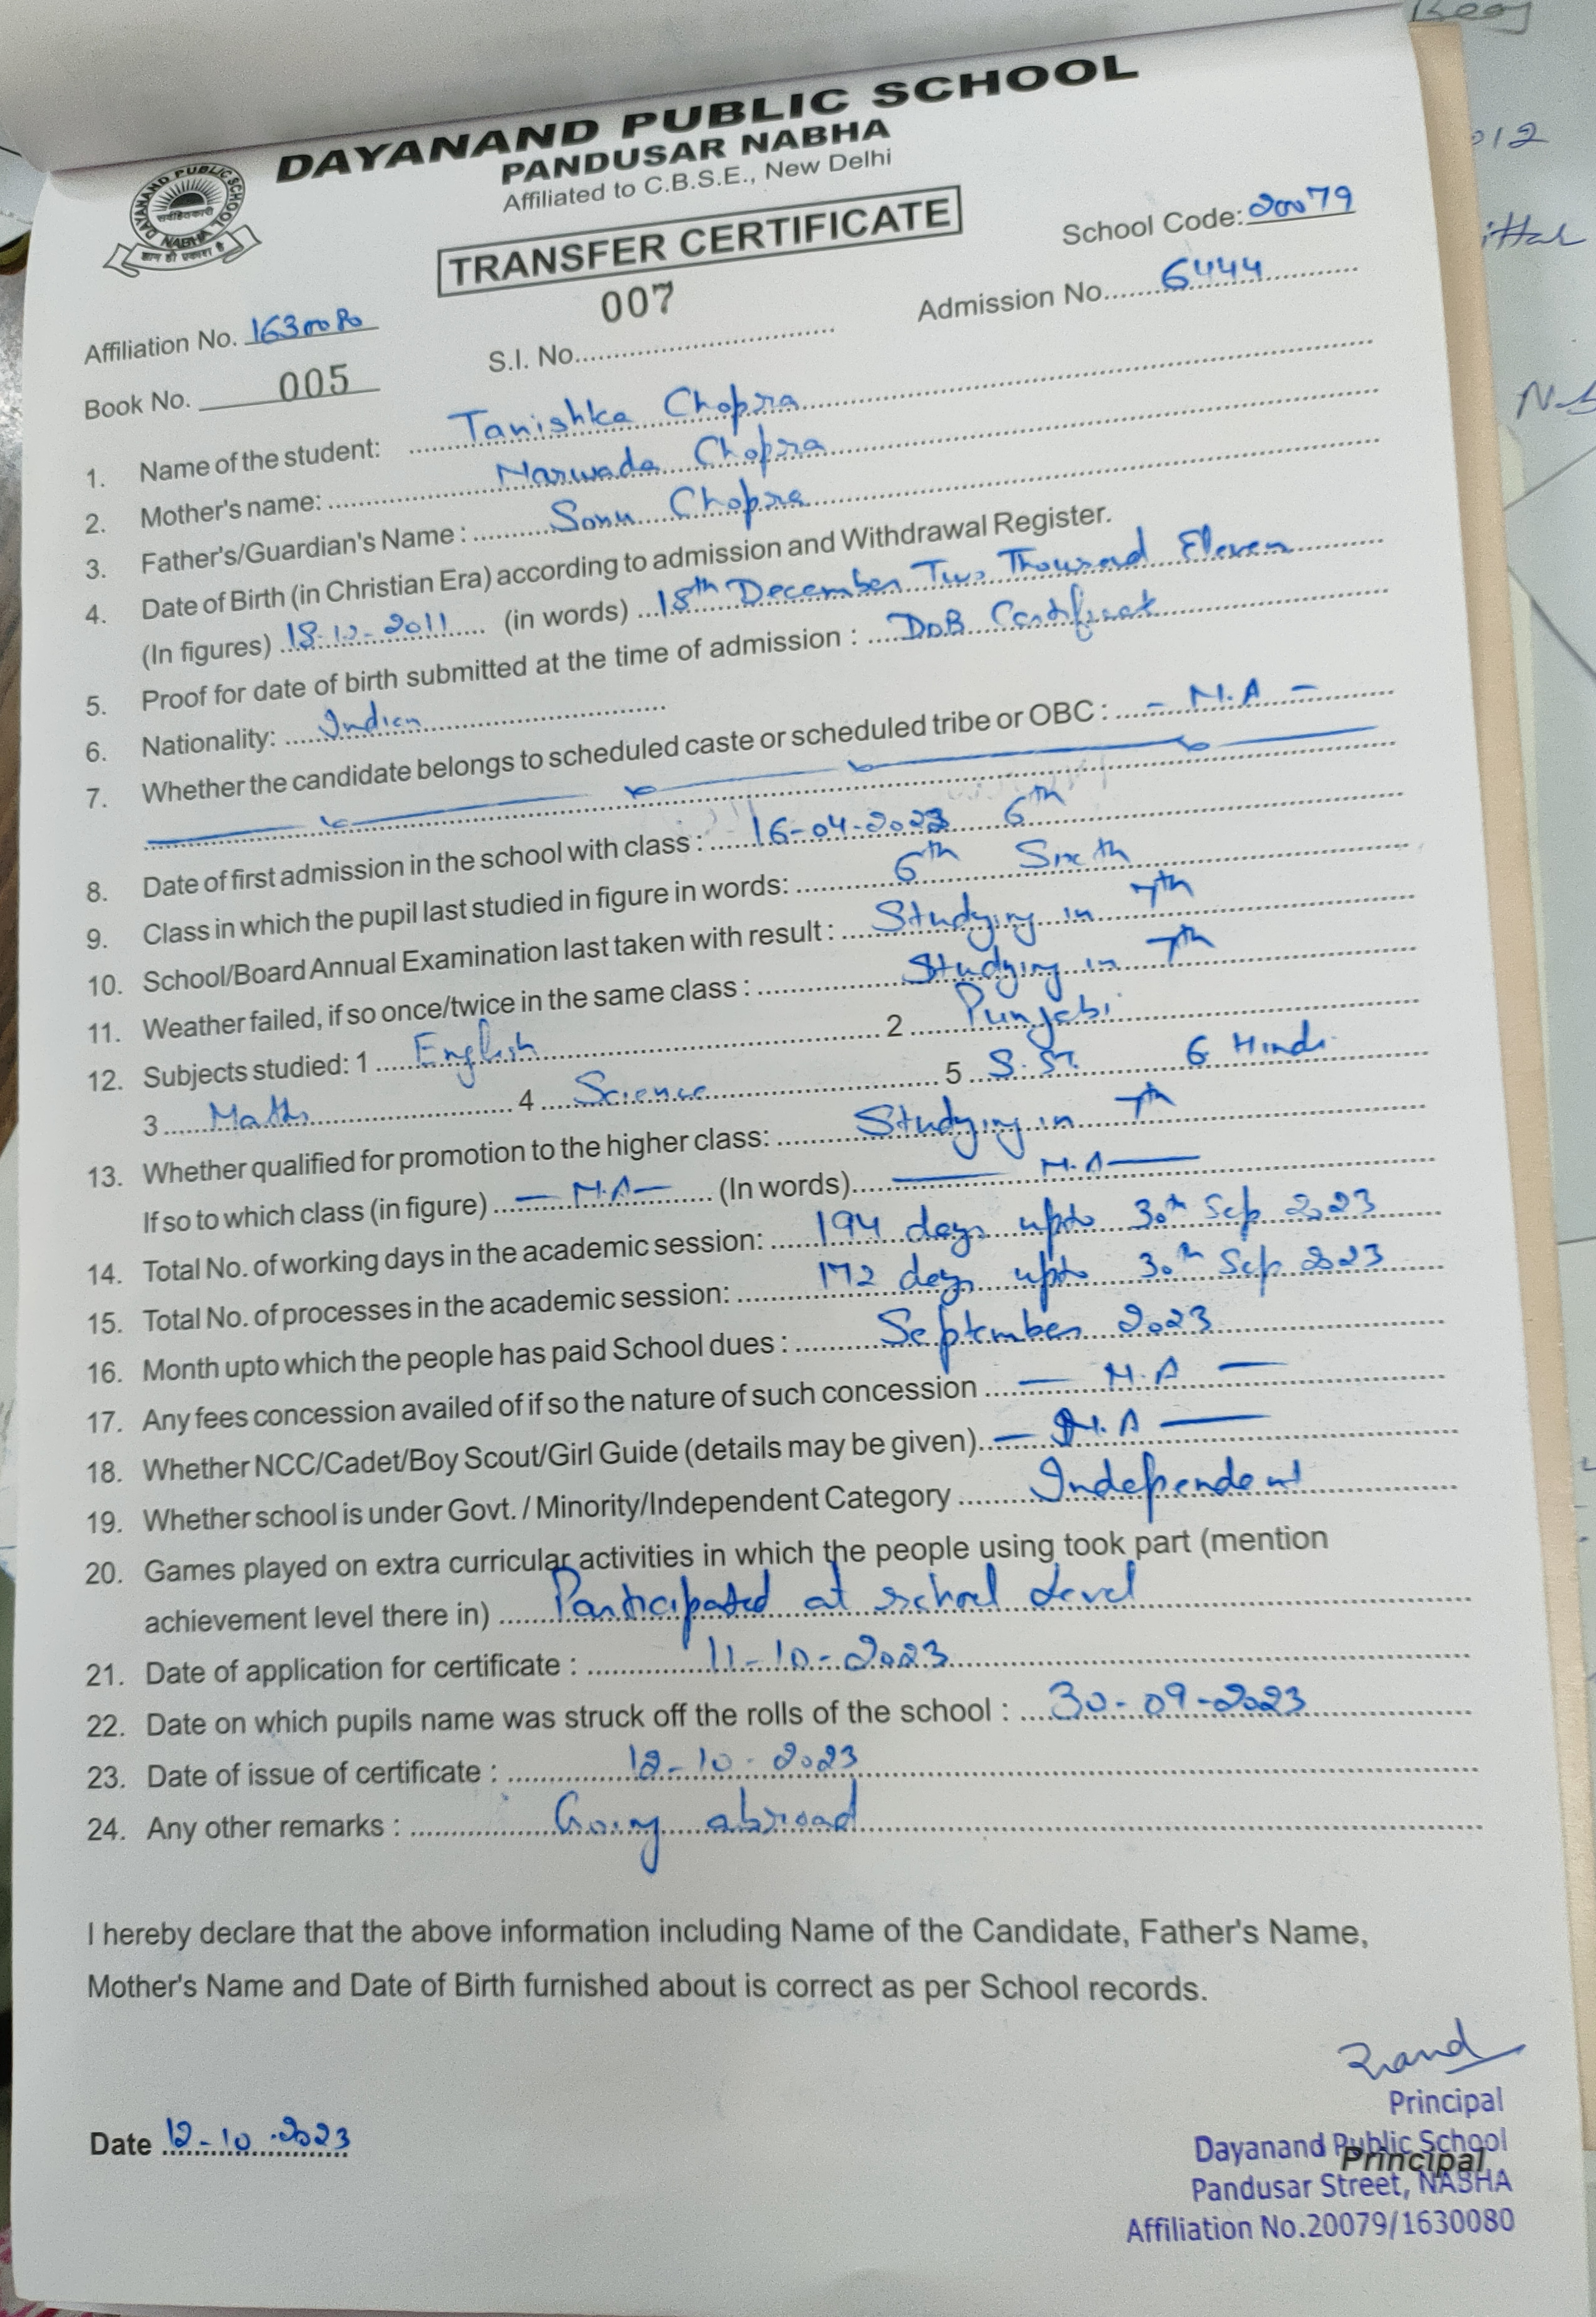 DAYANAND PUBLIC SCHOOL
PANDUSAR NABHA
Affiliated to C.B.S.E., New Delhi
DAYANAND PUBLIC SCHOOL
NABHA
सर्वहितकारी
ज्ञान ही प्रकाश है
TRANSFER CERTIFICATE
School Code: 20079
007
Admission No. 6444
Affiliation No. 1630080
S.I. No.
Book No. 005
1. Name of the student: Tanishka Chopra
2. Mother's name: Narwada Chopra
3. Father's/Guardian's Name : Sonu Chopra
4. Date of Birth (in Christian Era) according to admission and Withdrawal Register.
(In figures) 18-12-2011 (in words) 18th December Two Thousand Eleven
5. Proof for date of birth submitted at the time of admission : DOB Certificat
6. Nationality: Indian
7. Whether the candidate belongs to scheduled caste or scheduled tribe or OBC : - N.A -
8. Date of first admission in the school with class : 16-04-2023 6th
9. Class in which the pupil last studied in figure in words: 6th Sixth
10. School/Board Annual Examination last taken with result : Studying in 7th
11. Weather failed, if so once/twice in the same class : Studying in 7th
12. Subjects studied: 1 English 2 Punjabi
3 Maths 4 Science 5 S.St. 6 Hindi
13. Whether qualified for promotion to the higher class: Studying in 7th
If so to which class (in figure) - N.A - (In words) - N.A -
14. Total No. of working days in the academic session: 194 days upto 30th Sep 2023
15. Total No. of processes in the academic session: 172 days upto 30th Sep 2023
16. Month upto which the people has paid School dues : September 2023
17. Any fees concession availed of if so the nature of such concession - N.A -
18. Whether NCC/Cadet/Boy Scout/Girl Guide (details may be given) - N.A -
19. Whether school is under Govt. / Minority/Independent Category Independent
20. Games played on extra curricular activities in which the people using took part (mention
achievement level there in) Participated at school Level
21. Date of application for certificate : 11-10-2023
22. Date on which pupils name was struck off the rolls of the school : 30-09-2023
23. Date of issue of certificate : 12-10-2023
24. Any other remarks : Going abroad
I hereby declare that the above information including Name of the Candidate, Father's Name,
Mother's Name and Date of Birth furnished about is correct as per School records.
Principal
Date 12-10-2023
Dayanand Public School
Principal
Pandusar Street, NABHA
Affiliation No.20079/1630080